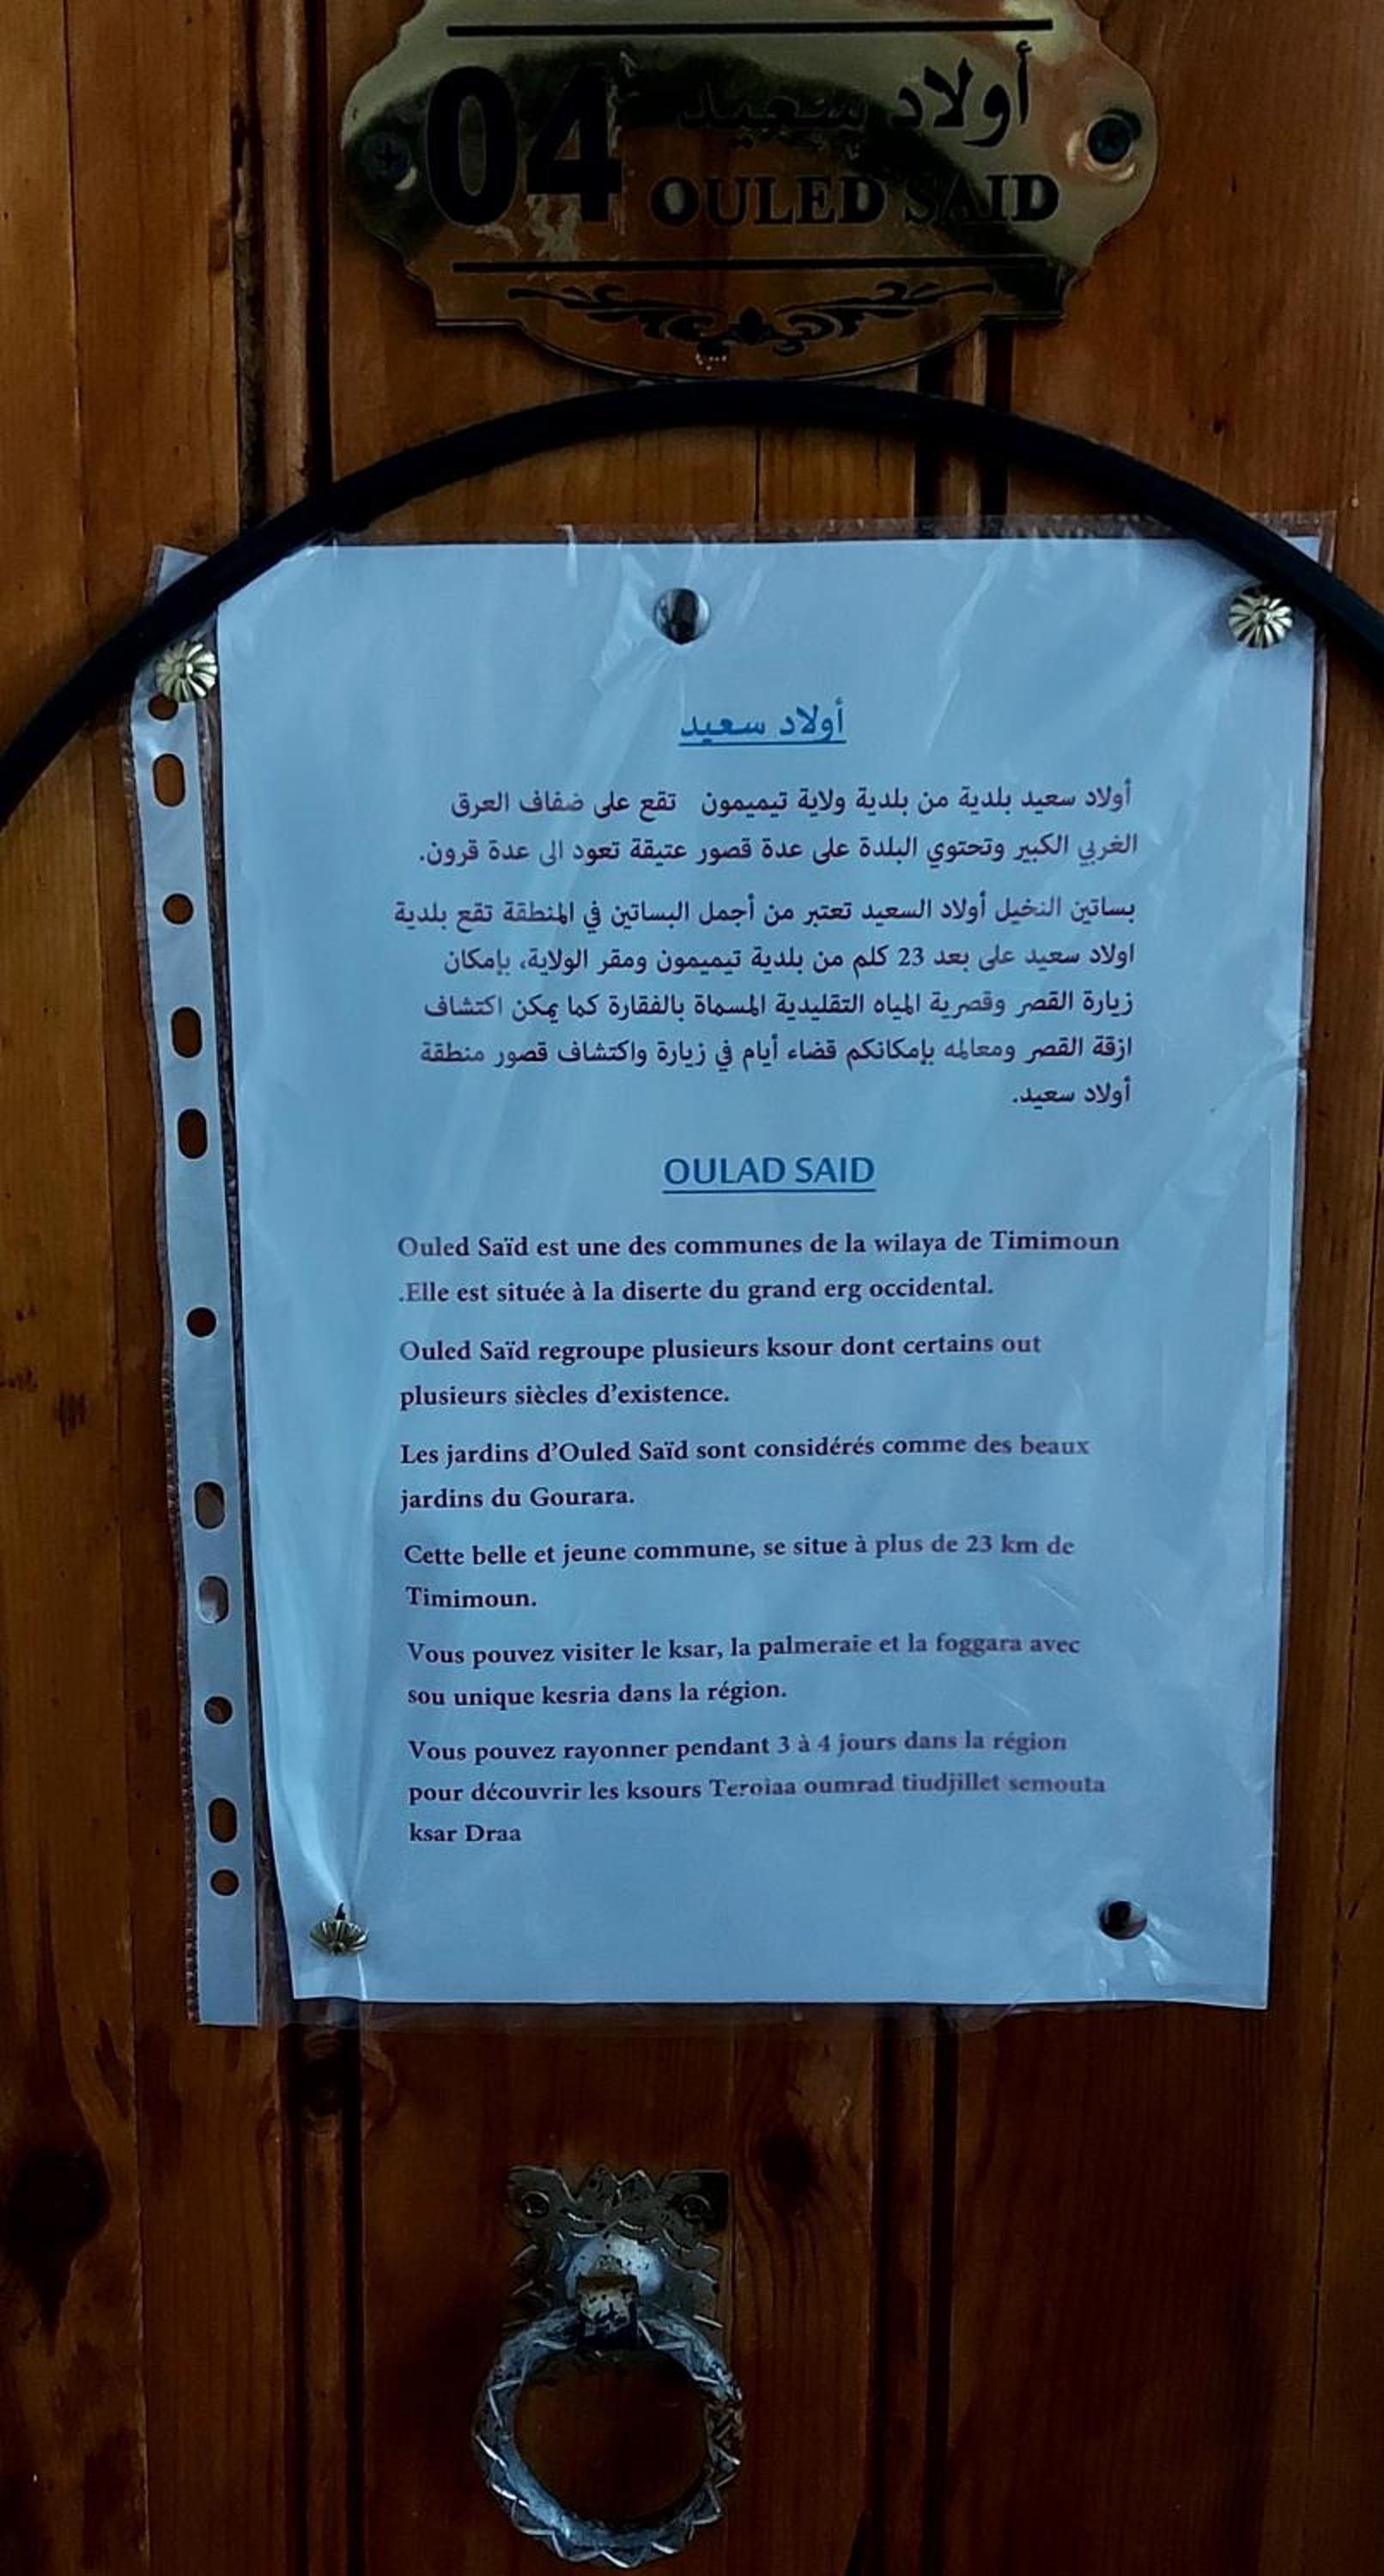 04 أولاد سعيد
OULED SAID
أولاد سعيد
أولاد سعيد بلدية من بلدية ولاية تيميمون تقع على ضفاف العرق
الغربي الكبير وتحتوي البلدة على عدة قصور عتيقة تعود الى عدة قرون.
بساتين النخيل أولاد السعيد تعتبر من أجمل البساتين في المنطقة تقع بلدية
اولاد سعيد على بعد 23 كلم من بلدية تيميمون ومقر الولاية، بإمكان
زيارة القصر وقصرية المياه التقليدية المسماة بالفقارة كما يمكن اكتشاف
ازقة القصر ومعالمه بإمكانكم قضاء أيام في زيارة واكتشاف قصور منطقة
أولاد سعيد.
OULAD SAID
Ouled Saïd est une des communes de la wilaya de Timimoun
.Elle est située à la diserte du grand erg occidental.
Ouled Saïd regroupe plusieurs ksour dont certains out
plusieurs siècles d’existence.
Les jardins d’Ouled Saïd sont considérés comme des beaux
jardins du Gourara.
Cette belle et jeune commune, se situe à plus de 23 km de
Timimoun.
Vous pouvez visiter le ksar, la palmeraie et la foggara avec
sou unique kesria dans la région.
Vous pouvez rayonner pendant 3 à 4 jours dans la région
pour découvrir les ksours Teroiaa oumrad tiudjillet semouta
ksar Draa